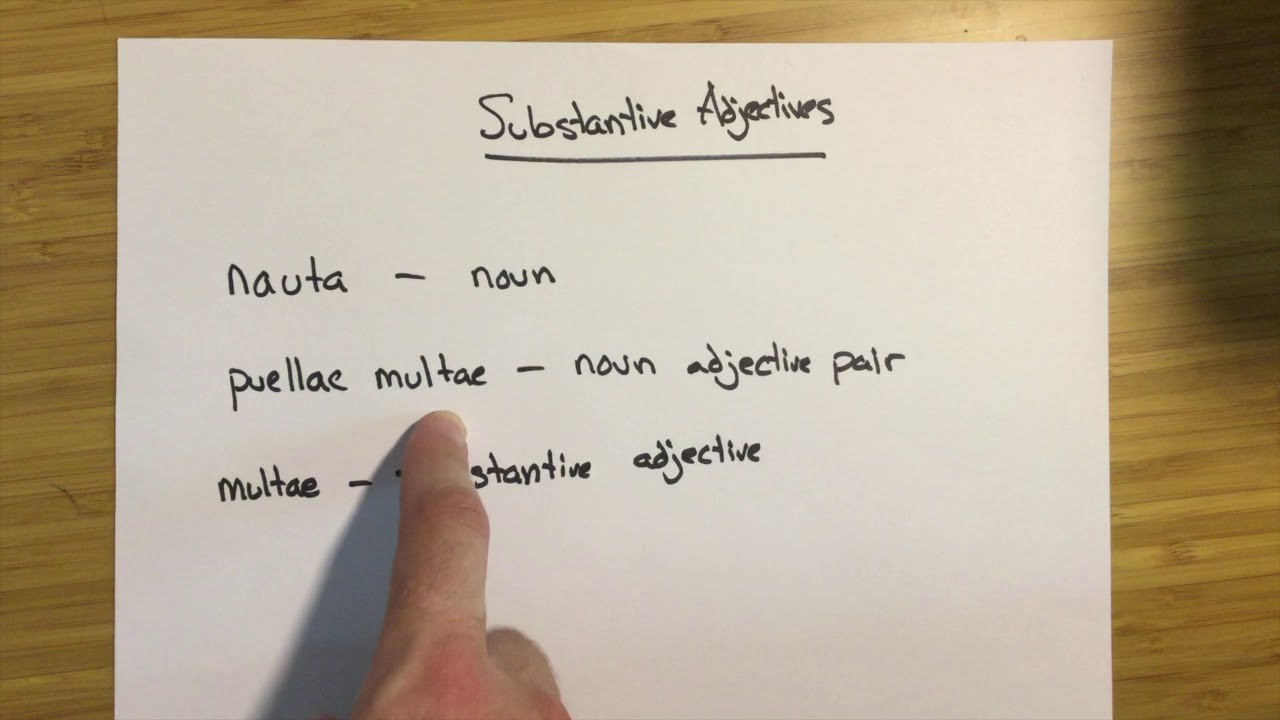 Substantive Adjectives
nauta – noun
puellae multae – noun adjective pair
multae – adjective